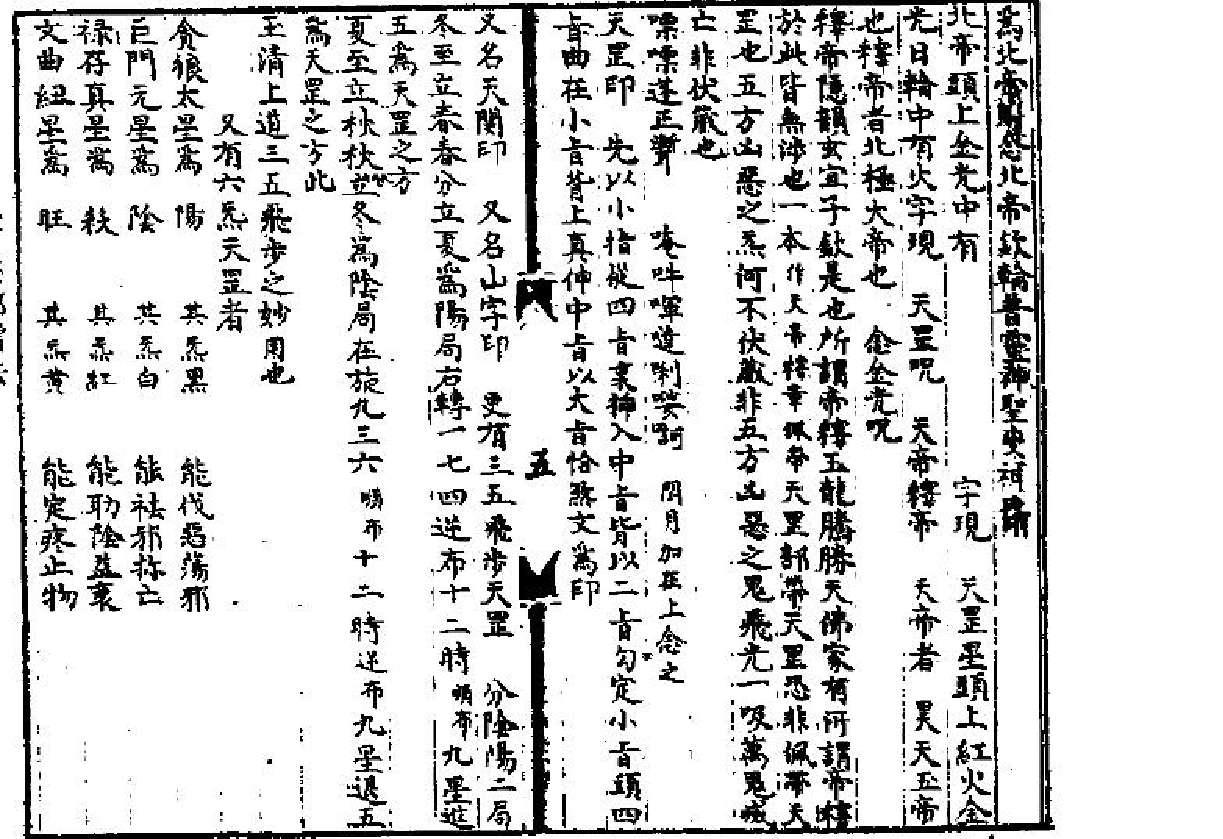 為北帝 北帝欽輪普靈神聖
北帝頭上金光中有 字現 天罡星頭上紅火金
光日輪中有火字現 天罡呪 天帝釋帝 天帝者 昊天玉帝
也釋帝者北極大帝也 念金光呪
釋帝隱韻玄宜子欽是也所謂帝釋玉龍騰勝天佛家有何謂帝釋
於此皆無涉也一本作天帝釋章佩帶天罡部帶天罡恐非佩帶天
罡也五方凶惡之炁何不伏藏非五方凶惡之鬼飛光一吸萬鬼滅
亡非伏藏也
嘌嘌蓬正聲 唵吽 唎娑訶 閏月加在上念之
天罡印 先以小指從四㫖裏 入中㫖皆以二㫖勾定小㫖頭四
㫖曲在小㫖背上真伸中㫖以大㫖恰煞文為印
五
又名天關印 又名山字印 更有三五飛步天罡 分陰陽二局
冬至立春春分立夏為陽局右轉一七四逆布十二時順布九星進
五為天罡之方
夏至立秋秋分立冬為陰局左旋九三六順布十二時逆布九星退五
為天罡之方此
玉清上道三五飛步之妙用也
又有六炁天罡者
貪狼太星為 陽 其炁黑 能伐惡蕩邪
巨門元星為 陰 其炁白 能祛邪 亡
禄存真星為 殺 其炁紅 能助陰益衰
文曲紐星為 旺 其炁黄 能定疼止物